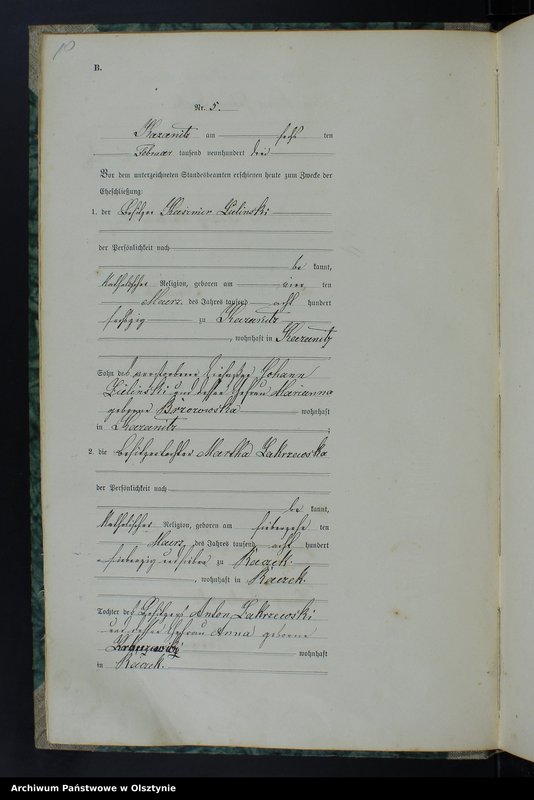 B.
Nr. 5.
Kazanitz am sechs ten
Februar tausend neunhundert drei
Vor dem unterzeichneten Standesbeamten erschienen heute zum Zwecke der
Eheschließung:
1. der Besitzer Kasimir Zielinski
der Persönlichkeit nach
be kannt,
katholischer Religion, geboren am vier ten
Maerz des Jahres tausend acht hundert
sechszig zu Kazanitz
, wohnhaft in Kazanitz
Sohn des verstorbenen Johann
Zielinski und dessen Ehefrau Marianna
geborene Brzozowska wohnhaft
in Kazanitz
2. die Besitzertochter Martha Zakrzewska
der Persönlichkeit nach
be kannt,
katholischer Religion, geboren am siebenzehn ten
Maerz des Jahres tausend acht hundert
siebenzig und sieben zu Raczek
, wohnhaft in Raczek
Tochter des Besitzers Anton Zakrzewski
und dessen Ehefrau Anna geborene
wohnhaft
in Raczek.
Archiwum Państwowe w Olsztynie